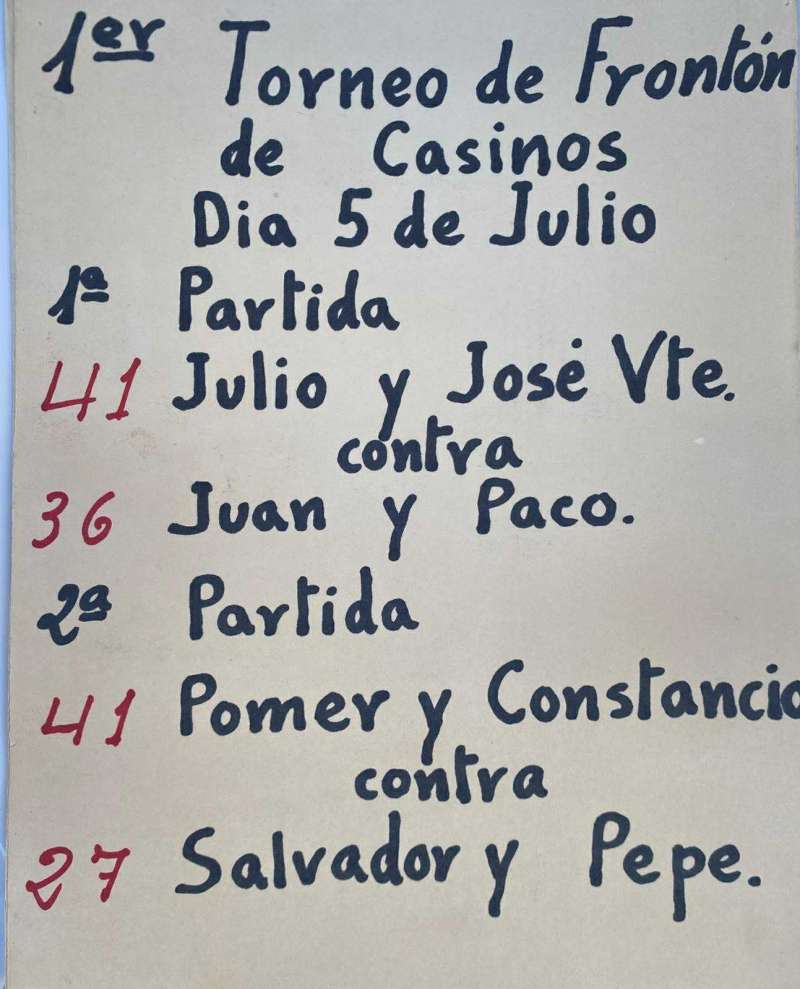 1er Torneo de Frontón
de Casinos
Dia 5 de Julio
1ª Partida
41 Julio y José Vte.
contra
36 Juan y Paco.
2ª Partida
41 Pomer y Constancio
contra
27 Salvador y Pepe.